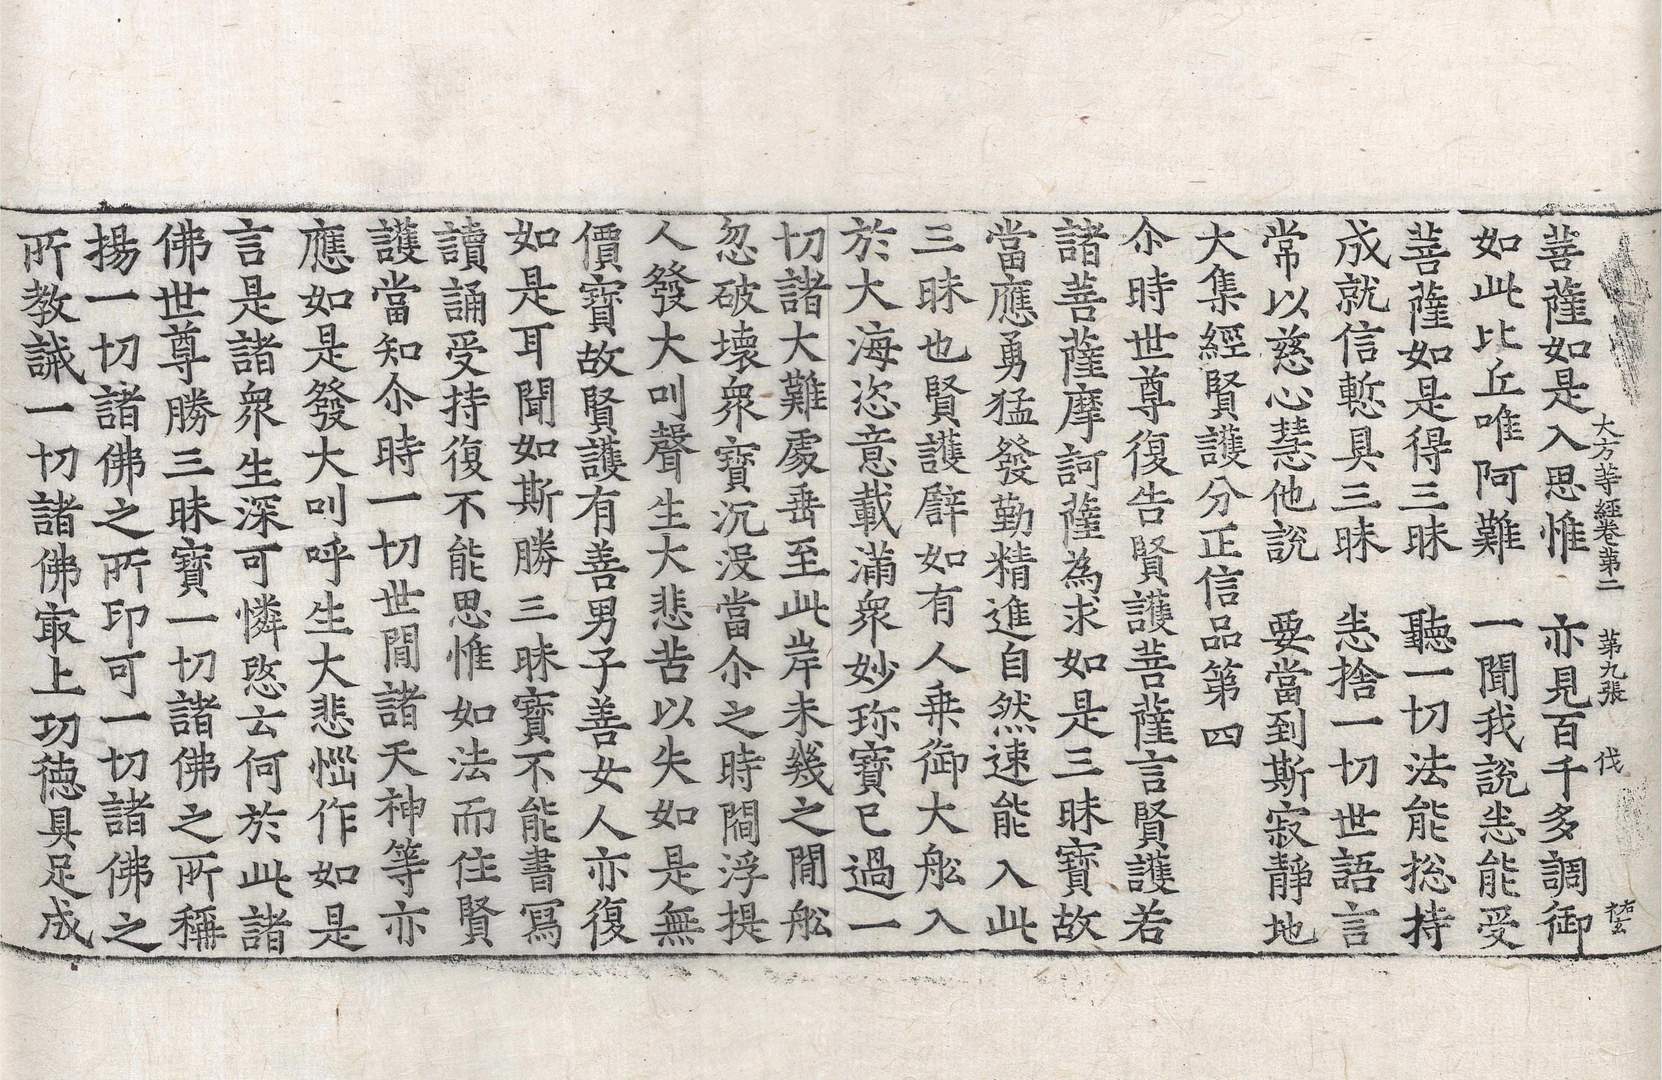 大方等経卷第二　第九張　伐　祐玄
菩薩如是入思惟　亦見百千多調御
如此比丘唯阿難　一聞我說悉能受
菩薩如是得三昧　聽一切法能揔持
成就信慙具三昧　悉捨一切世語言
常以慈心慧他說　要當到斯寂靜地
大集經賢護分正信品第四
尒時世尊復告賢護菩薩言賢護若
諸菩薩摩訶薩為求如是三昧寶故
當應勇猛發勤精進自然速能入此
三昧也賢護譬如有人乗御大舩入
於大海恣意載滿衆妙珎寶已過一
切諸大難處垂至此岸未幾之閒舩
忽破壞衆寶沉沒當尒之時閻浮提
人發大叫聲生大悲苦以失如是無
價寶故賢護有善男子善女人亦復
如是耳聞如斯勝三昧寶不能書寫
讀誦受持復不能思惟如法而住賢
護當知尒時一切世閒諸天神等亦
應如是發大叫呼生大悲惱作如是
言是諸衆生深可憐愍云何於此諸
佛世尊勝三昧寶一切諸佛之所稱
揚一切諸佛之所印可一切諸佛之
所教誡一切諸佛㝡上功德具足成